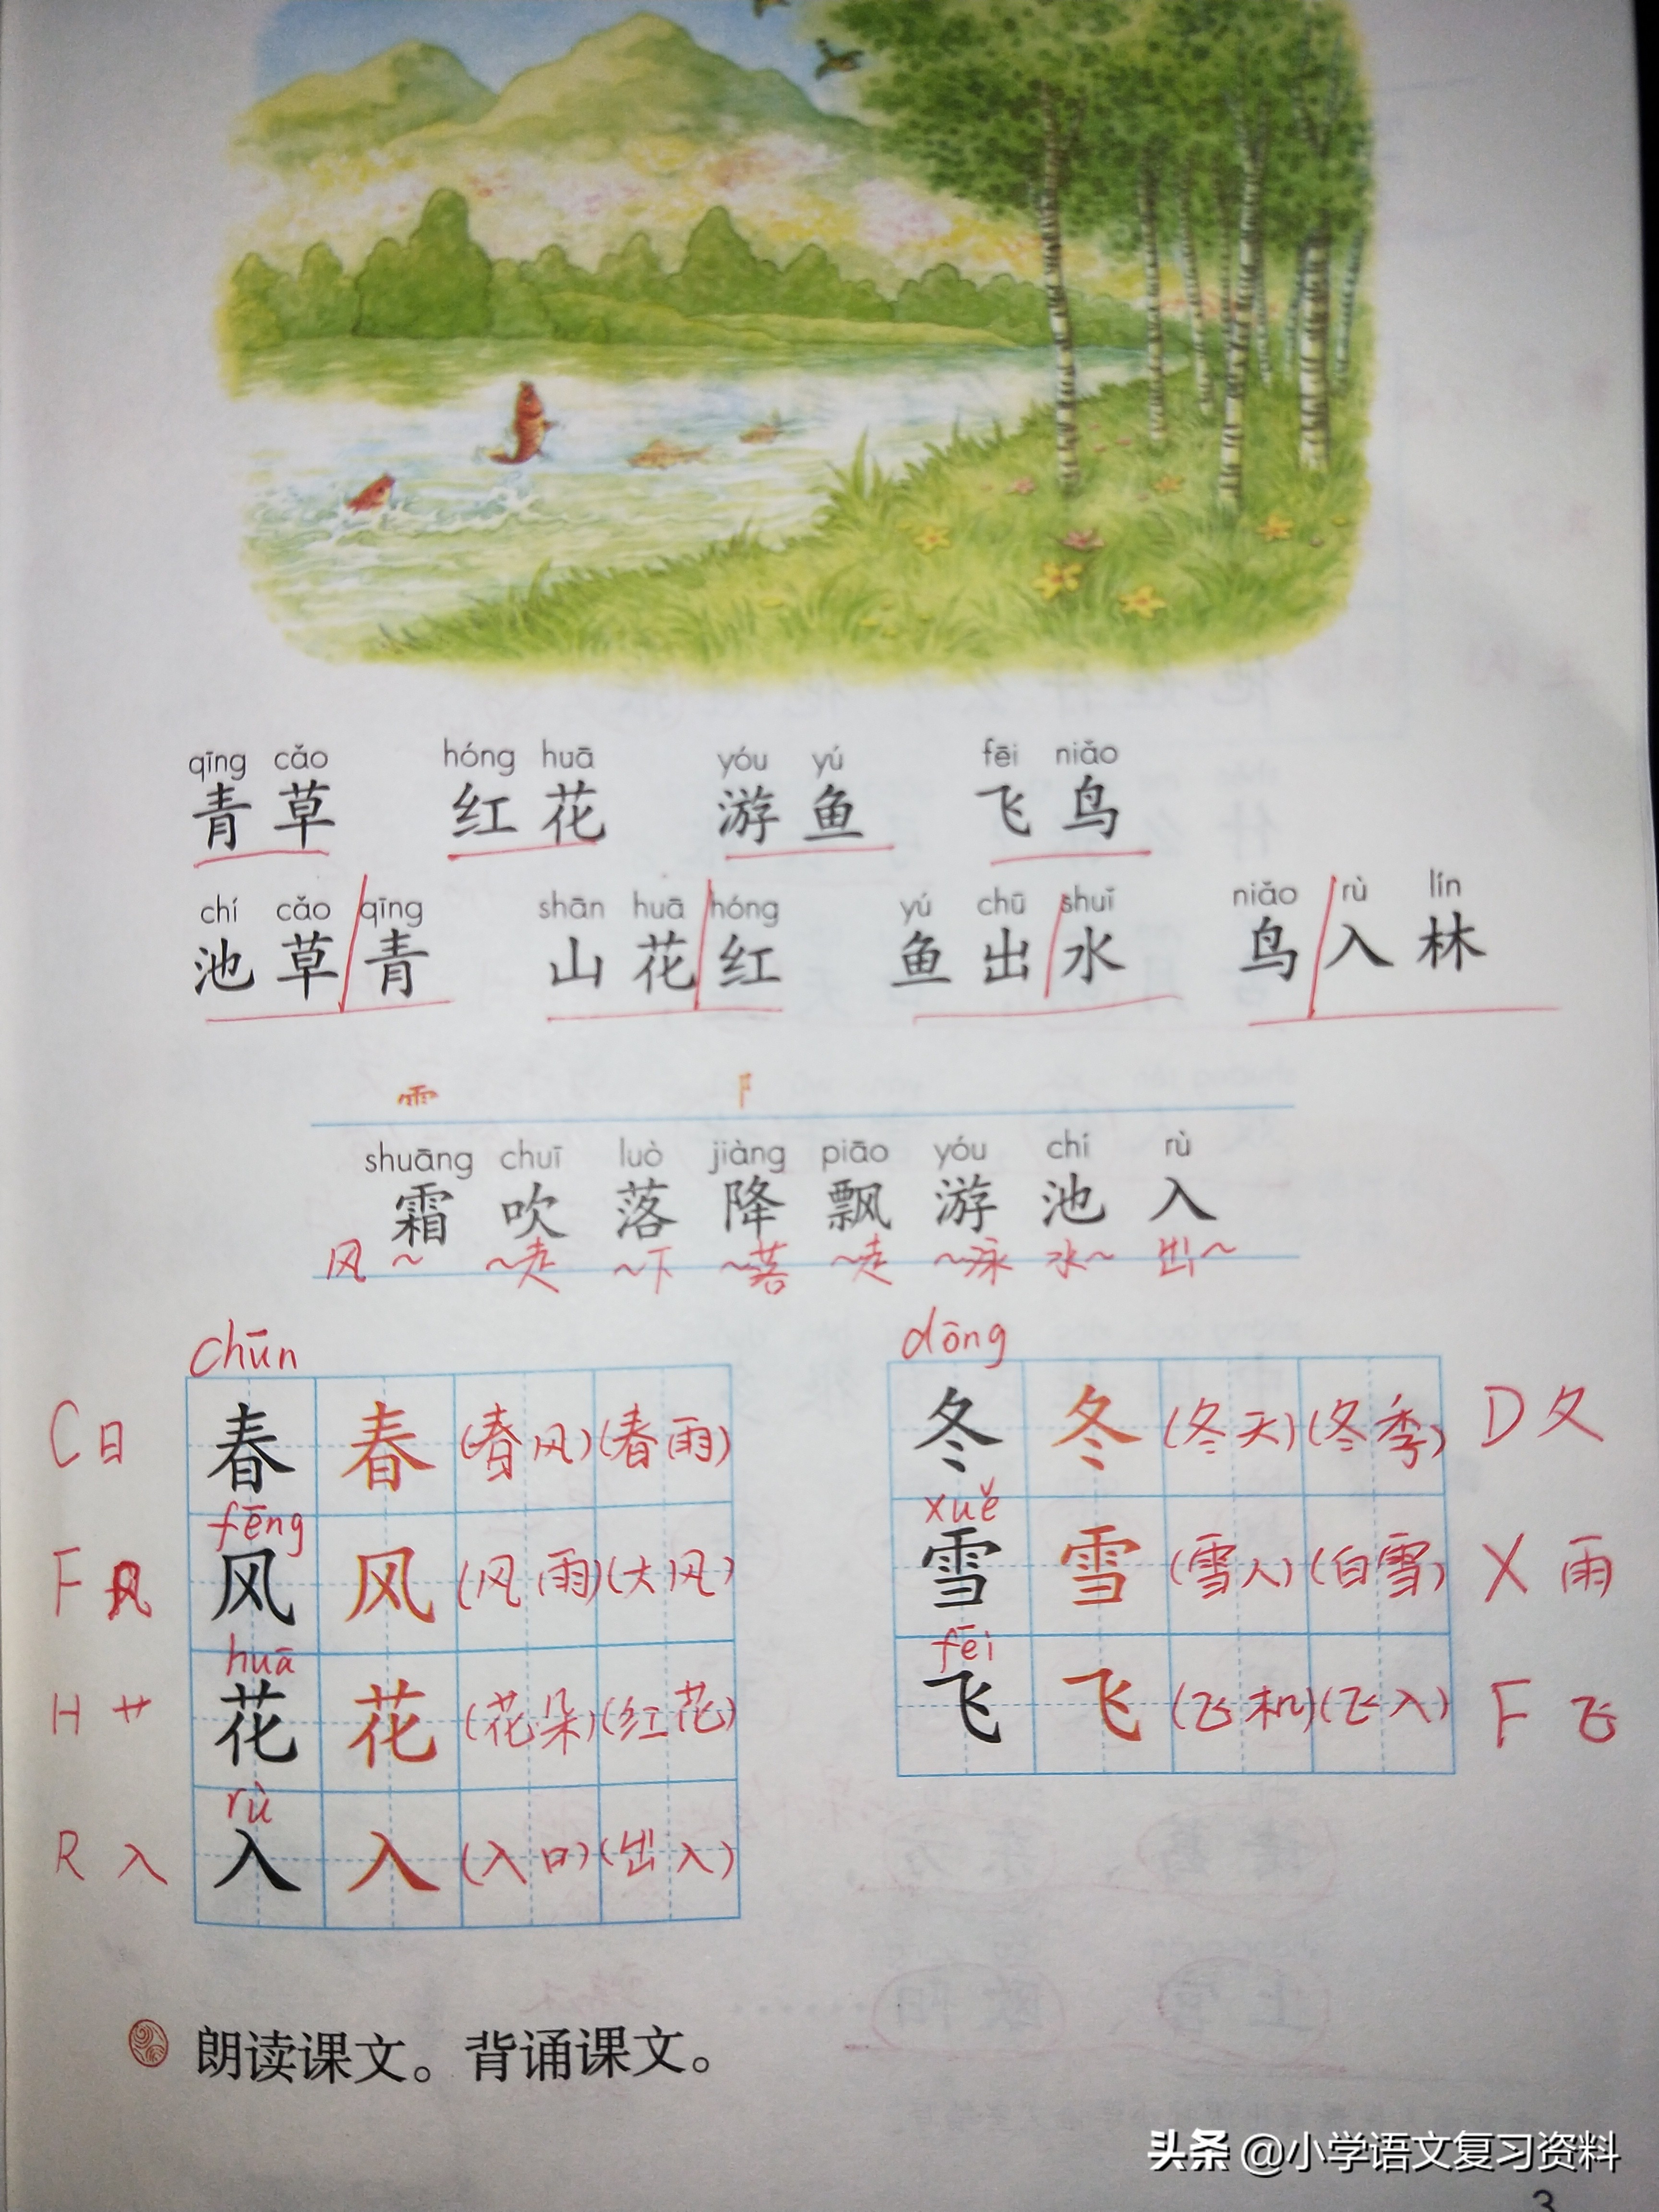 qīng cǎo hóng huā yóu yú fēi niǎo
青草 红花 游鱼 飞鸟
chí cǎo qīng shān huā hóng yú chū shuǐ niǎo rù lín
池草青 山花红 鱼出水 鸟入林
shuāng chuī luò jiàng piāo yóu chí rù
霜 吹 落 降 飘 游 池 入
风~ ~走 ~下 ~落 ~走 ~泳 水~ 出~
chūn dōng
C日 春 春 (春风)(春雨) 冬 冬 (冬天)(冬季) D夂
fēng xuě
F风 风 风 (风雨)(大风) 雪 雪 (雪人)(白雪) X雨
huā fēi
H艹 花 花 (花朵)(红花) 飞 飞 (飞机)(飞入) F飞
rù
R入 入 入 (入口)(出入)
朗读课文。背诵课文。
头条 @小学语文复习资料
3